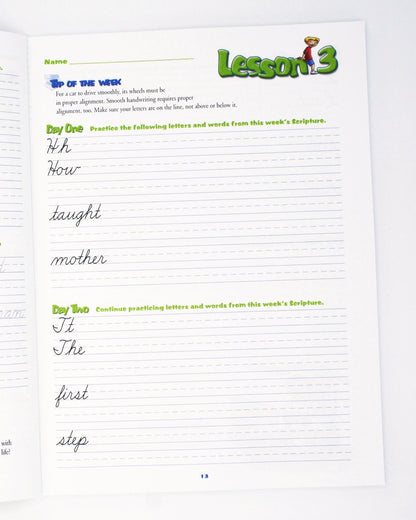 Name
Lesson 3
Tip of the Week
For a car to drive smoothly, its wheels must be
in proper alignment. Smooth handwriting requires proper
alignment, too. Make sure your letters are on the line, not above or below it.
Day One Practice the following letters and words from this week's Scripture.
Hh
How
taught
mother
Day Two Continue practicing letters and words from this week's Scripture.
Tt
The
first
step
with
life!
13